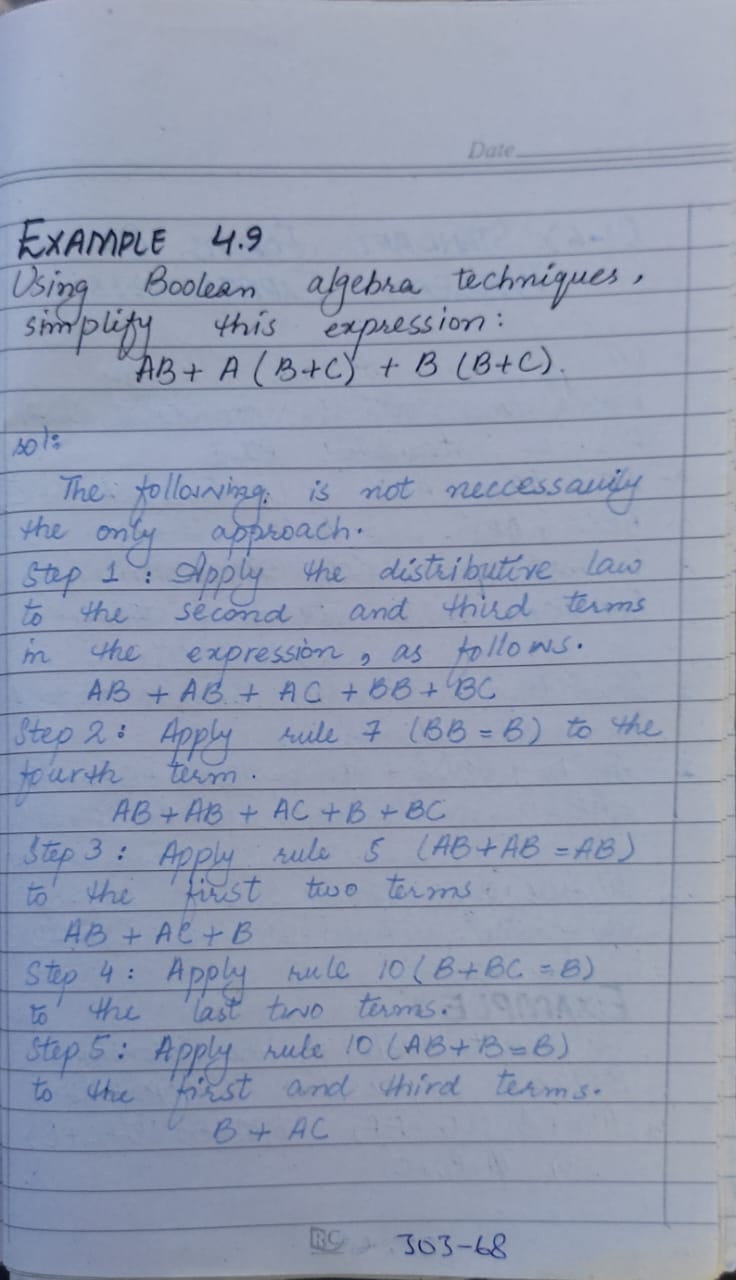 Date
EXAMPLE 4.9
Using Boolean algebra techniques,
simplify this expression:
AB + A (B+C) + B (B+C).
sol:
The following is not neccessarily
the only approach.
Step 1 : Apply the distributive law
to the second and third terms
in the expression, as follows.
AB + AB + AC + BB + BC
Step 2 : Apply rule 7 (BB = B) to the
fourth term.
AB + AB + AC + B + BC
Step 3 : Apply rule 5 (AB + AB = AB)
to the first two terms.
AB + AC + B
Step 4 : Apply rule 10 (B + BC = B)
to the last two terms.
Step 5 : Apply rule 10 (AB + B = B)
to the first and third terms.
B + AC
RC 303-68